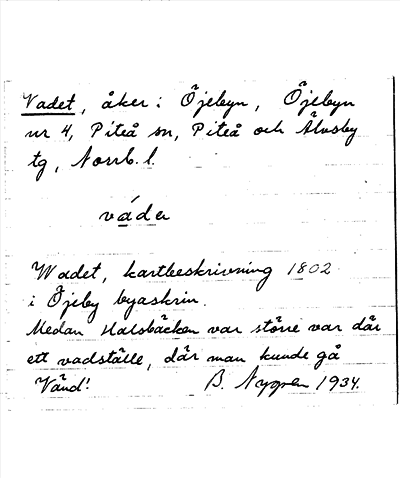 Vadet, åker i Öjebyn, Öjebyn
nr 4, Piteå sn, Piteå och Älvsby
tg, Norrb. l.
váde​n
Wadet, kartbeskrivning 1802
i Öjeby byaskrin.
Medan Halsbäcken var större var där
ett vadställe, där man kunde gå
Vänd! B. Nygren 1934.